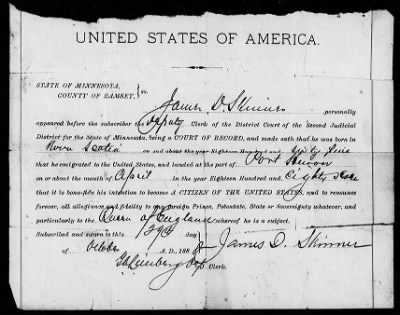 UNITED STATES OF AMERICA.
STATE OF MINNESOTA,
COUNTY OF RAMSEY, } ss.
James D Skinner personally
appeared before the subscriber the Deputy Clerk of the District Court of the Second Judicial
District for the State of Minnesota, being a COURT OF RECORD, and made oath that he was born in
Nova Scotia on or about the year Eighteen Hundred and
that he emigrated to the United States, and landed at the port of Port Huron
on or about the month of April in the year Eighteen Hundred and Eighty
that it is bona-fide his intention to become A CITIZEN OF THE UNITED STATES, and to renounce
forever, all allegiance and fidelity to any Foreign Prince, Potentate, State or Sovereignty whatever, and
particularly to the Queen of England whereof he is a subject.
Subscribed and sworn to this 29th day
of October A. D., 188 James D. Skinner
Clerk.